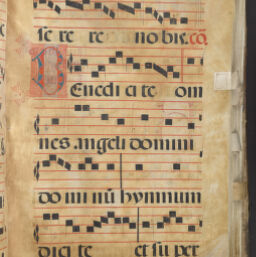 se re re no bis. cō
Benedi ci te om
nes angeli domini
do mi nū hymnum
dici te et su per